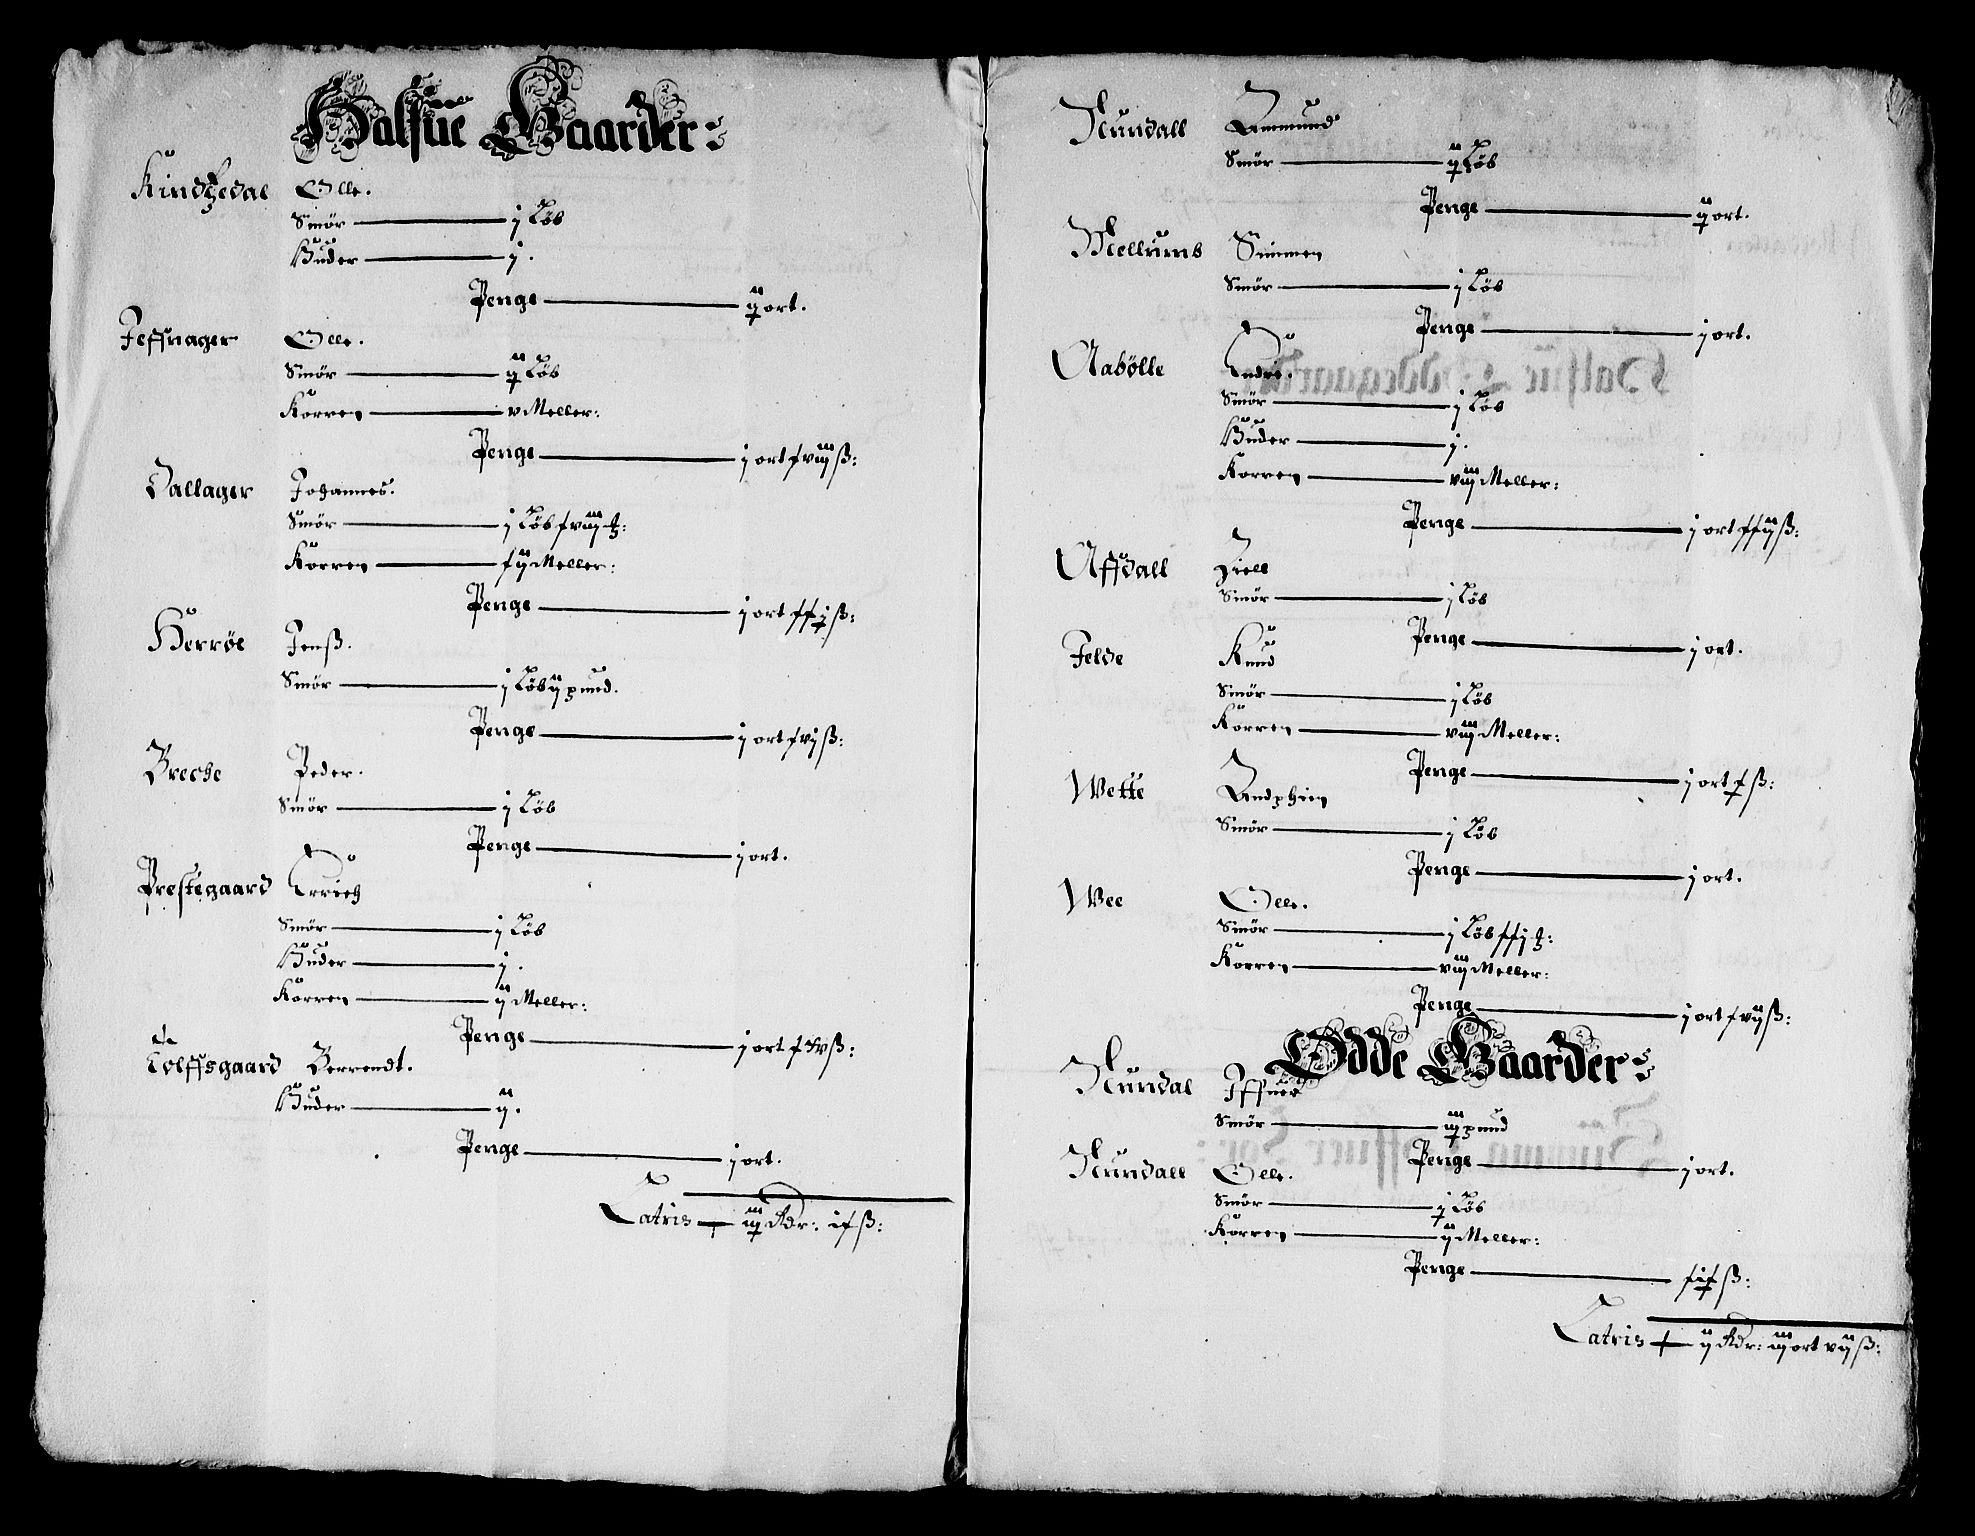 Halfüe Gaarder:
Kindtzedal Olle.
Smör — j Löb
Huder — j.
Penge — ij ort.
Jeffnager Olle.
Smör — ij Löb
Korren — v Meller:
Penge — j ort xviij ß:
Dallager Johannes.
Smör — j Löb
Korren — xij Meller:
Penge — j ort
Herröe Jenß.
Smör — j Löb ij pund.
Penge — j ort xvj ß:
Breche Peder.
Smör — j Löb
Penge — j ort.
Prestegaard Errich
Smör — j Löb
Huder — j.
Korren — ij Meller:
Penge — j ort
Tolffsgaard Berrendt.
Huder — ij.
Penge — j ort.
Latris — iij Rdr: ix ß:
Nundall Ammund
Smör — ij Löb
Penge — ij ort.
Mellumb Simmen
Smör — j Löb
Penge — j ort.
Aabölle Endre.
Smör — j Löb
Huder — j.
Korren — viij Meller:
Penge — j ort xxij ß:
Affdall Ziell
Smör — j Löb
Penge — j ort.
Felde Knud
Smör — j Löb
Korren — viij Meller:
Penge — j ort x ß:
Wette
Smör — j Löb
Penge — j ort.
Wee Olle.
Smör — j Löb
Korren — viij Meller:
Penge — j ort xvij ß:
Odde Gaarder:
Nundal Iffuer
Smör — iij pund
Penge — j ort.
Nundall Olle.
Smör — j Löb
Korren — ij Meller:
Penge — xix ß:
Latris — ij Rdr: iij ort vij ß: